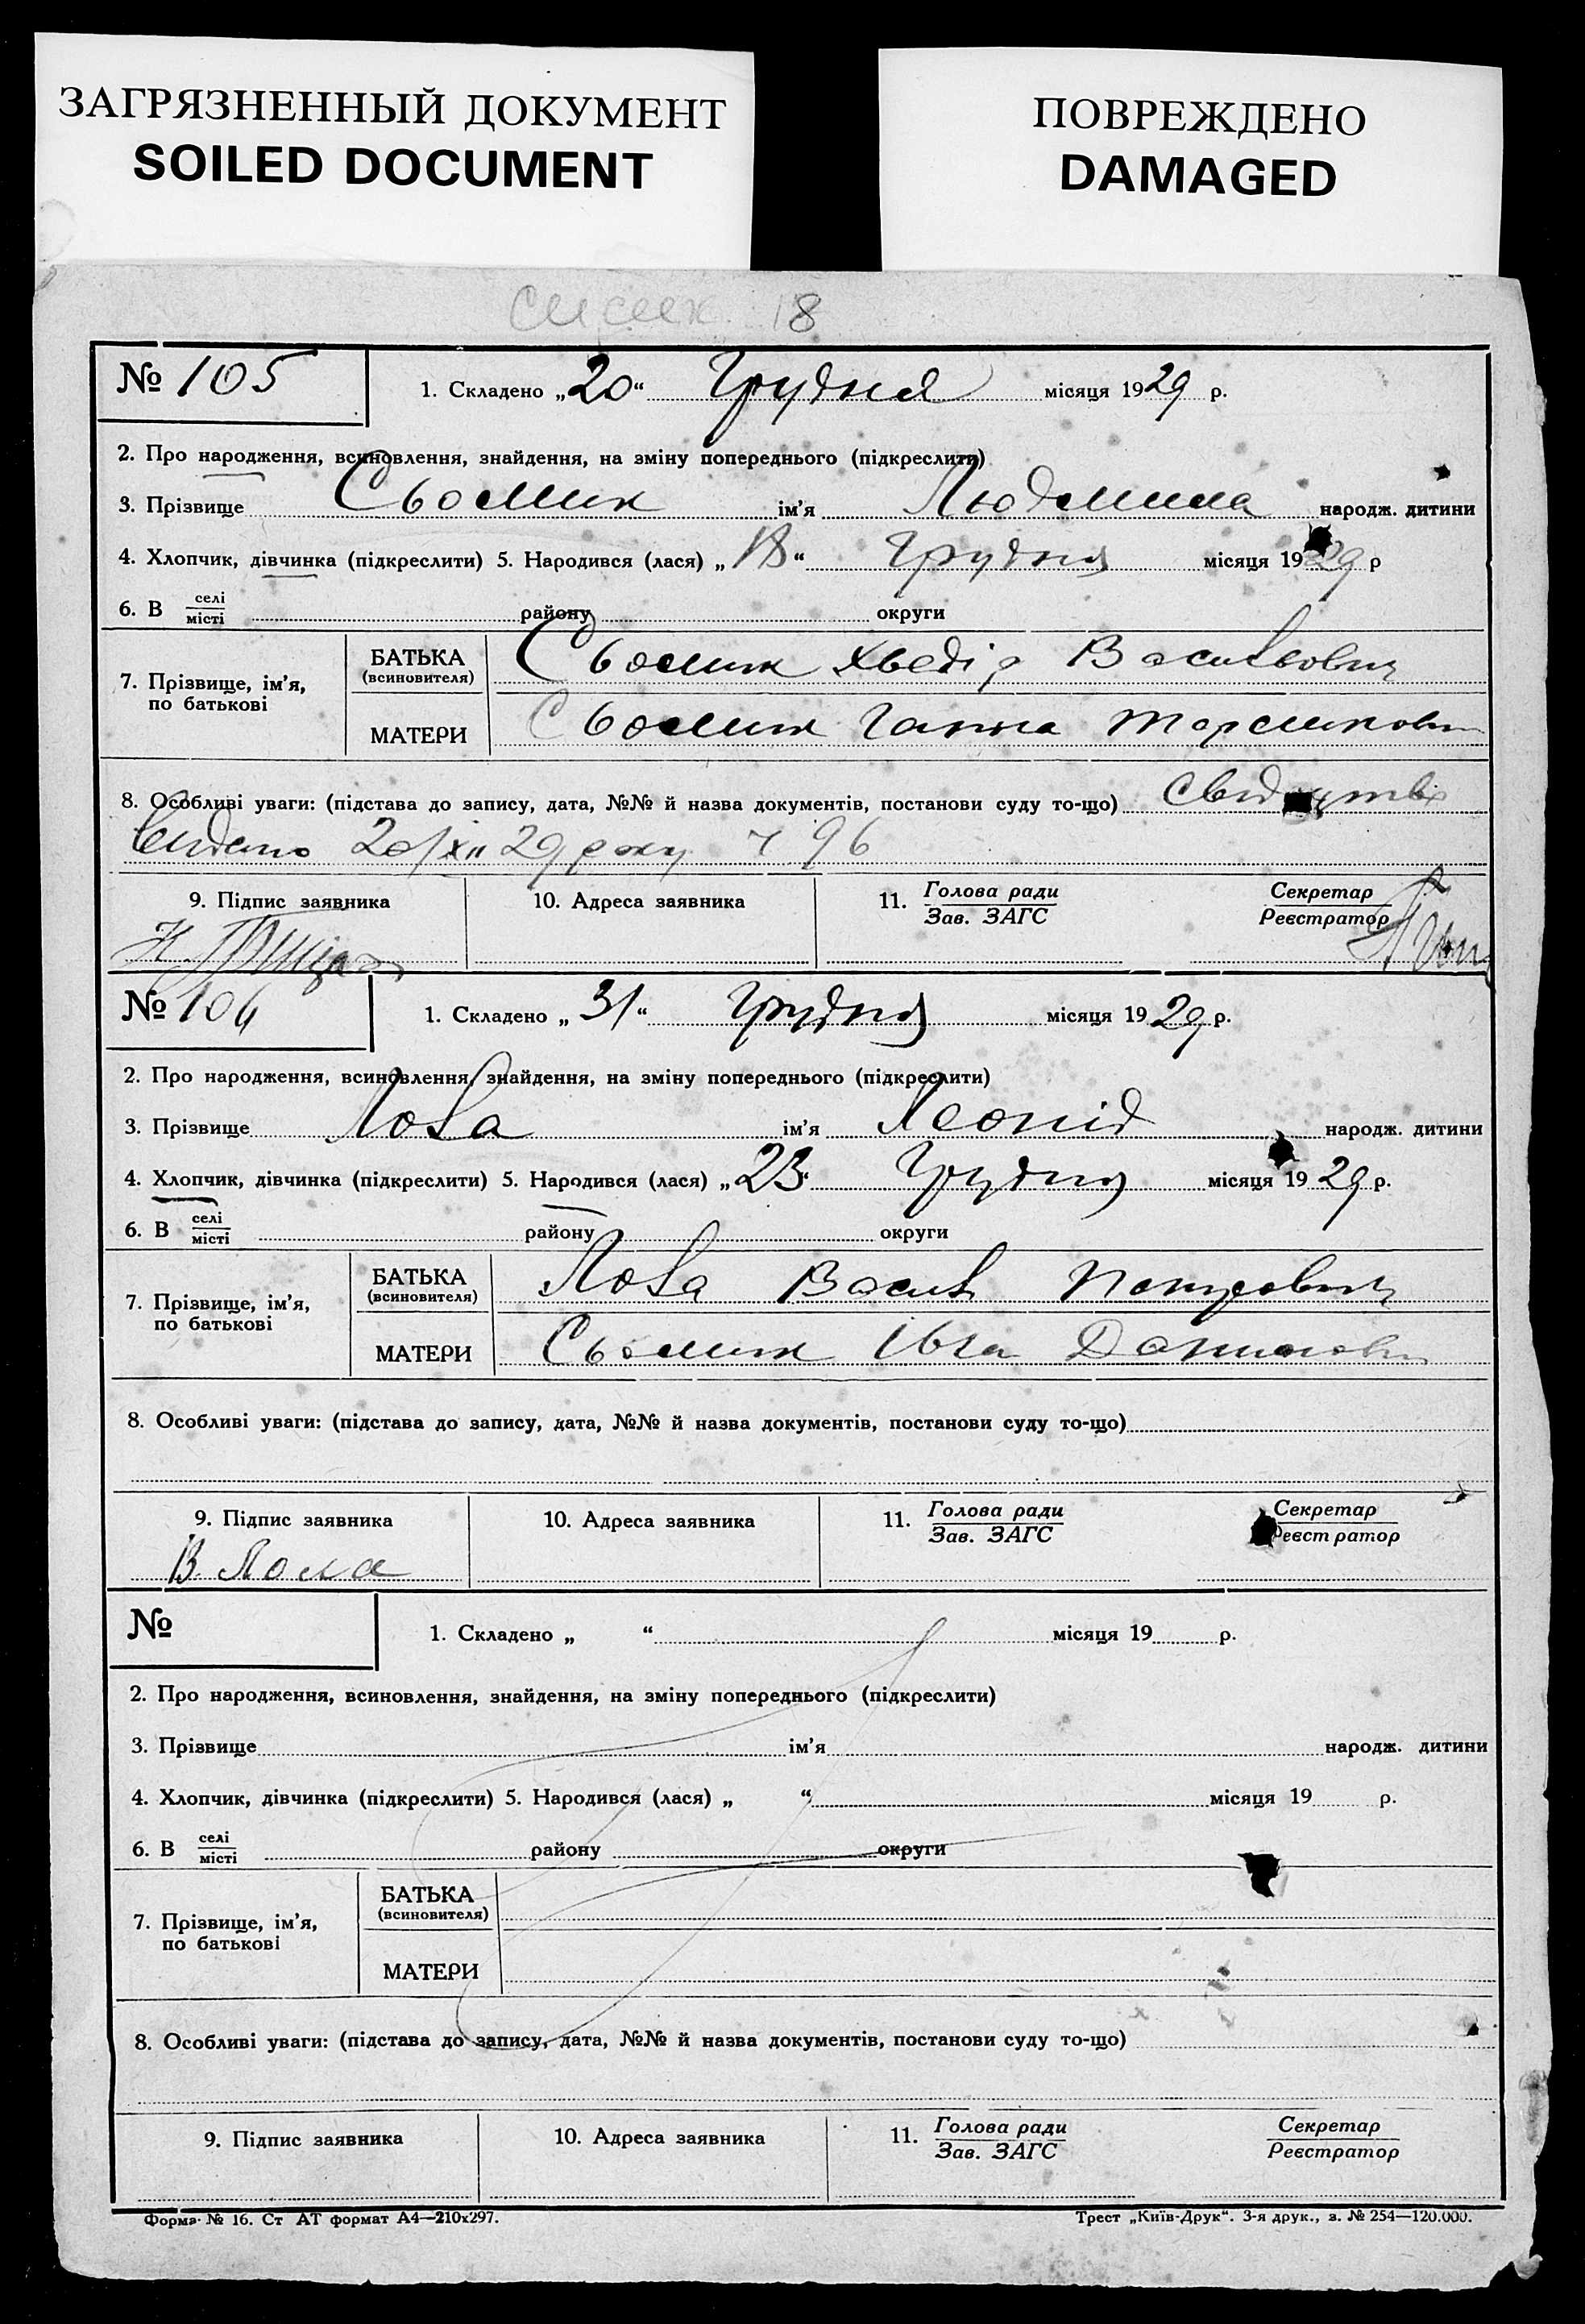 ЗАГРЯЗНЕННЫЙ ДОКУМЕНТ
SOILED DOCUMENT
ПОВРЕЖДЕНО
DAMAGED
18
№ 105
1. Складено „20“ Грудня місяця 1929 р.
2. Про народження, всиновлення, знайдення, на зміну попереднього (підкреслити)
3. Прізвище Сьомик ім'я Людмила народж. дитини
4. Хлопчик, дівчинка (підкреслити) 5. Народився (лася) „18“ Грудня місяця 1929 р
6. В селі/місті району округи
7. Прізвище, ім'я, по батькові
БАТЬКА (всиновителя) Сьомик Хведір Васильович
МАТЕРИ Сьомик Ганна
8. Особливі уваги: (підстава до запису, дата, №№ й назва документів, постанови суду то-що)
видано 20/XII 29 року ч 96
9. Підпис заявника 10. Адреса заявника 11. Голова ради/Зав. ЗАГС Секретар/Реєстратор
№ 106
1. Складено „31“ Грудня місяця 1929 р.
2. Про народження, всиновлення, знайдення, на зміну попереднього (підкреслити)
3. Прізвище Лола ім'я Леонід народж. дитини
4. Хлопчик, дівчинка (підкреслити) 5. Народився (лася) „23“ Грудня місяця 1929 р.
6. В селі/місті району округи
7. Прізвище, ім'я, по батькові
БАТЬКА (всиновителя) Лола Василь Петрович
МАТЕРИ Сьомик Івга
8. Особливі уваги: (підстава до запису, дата, №№ й назва документів, постанови суду то-що)
9. Підпис заявника 10. Адреса заявника 11. Голова ради/Зав. ЗАГС Секретар/Реєстратор
В. Лола
№
1. Складено „ “ місяця 19 р.
2. Про народження, всиновлення, знайдення, на зміну попереднього (підкреслити)
3. Прізвище ім'я народж. дитини
4. Хлопчик, дівчинка (підкреслити) 5. Народився (лася) „ “ місяця 19 р.
6. В селі/місті району округи
7. Прізвище, ім'я, по батькові
БАТЬКА (всиновителя)
МАТЕРИ
8. Особливі уваги: (підстава до запису, дата, №№ й назва документів, постанови суду то-що)
9. Підпис заявника 10. Адреса заявника 11. Голова ради/Зав. ЗАГС Секретар/Реєстратор
Форма № 16. Ст АТ формат А4—210х297. Трест „Київ-Друк“. 3-я друк., з. № 254—120.000.